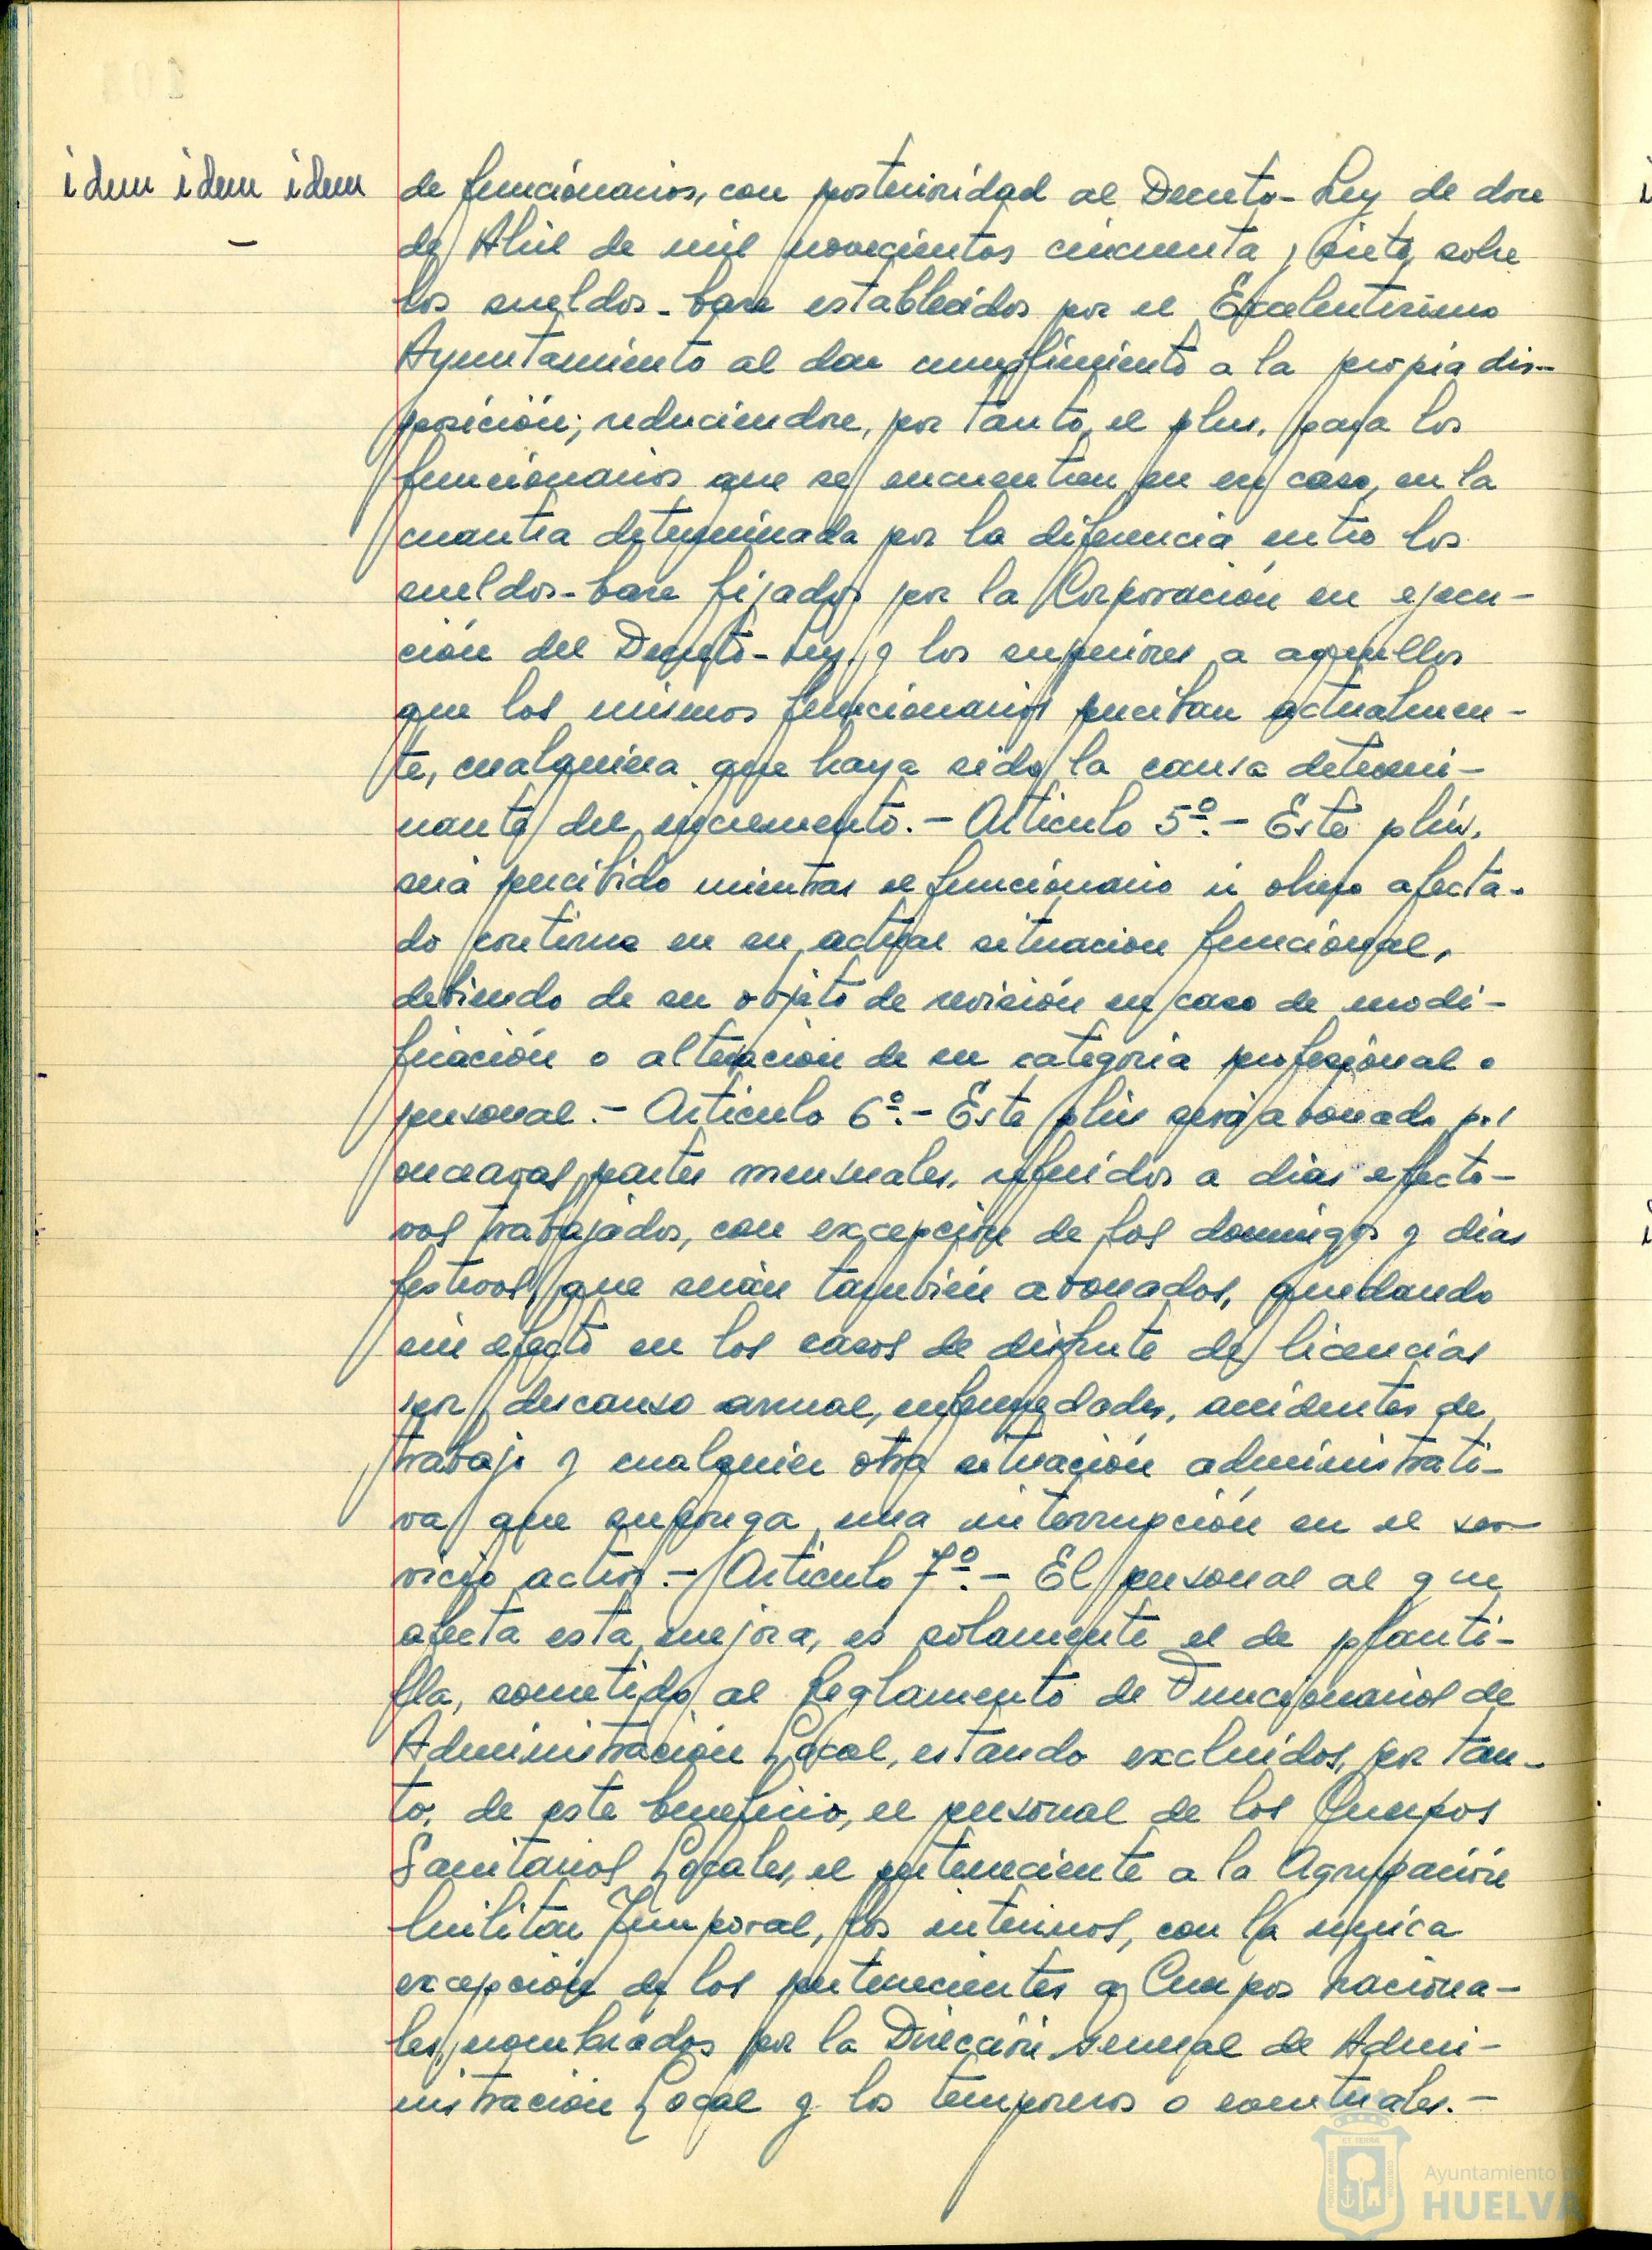 idem idem idem
de funcionarios, con posterioridad al Decreto-Ley de doce
de Abril de mil novecientos cincuenta y siete, sobre
los sueldos-base establecidos por el Excelentísimo
Ayuntamiento al dar cumplimiento a la propia dis-
posición; reduciendose, por tanto, el plus, para los
funcionarios que se encuentren en ese caso, en la
cuantia determinada por la diferencia entre los
sueldos-base fijados por la Corporación en ejecu-
ción del Decreto-Ley, y los superiores a aquellos
que los mismos funcionarios perciban actualmen-
te, cualquiera que haya sido la causa determi-
nante del incremento.- Articulo 5º.- Este plus,
será percibido mientras el funcionario u obrero afecta-
do continue en su actual situacion funcional,
debiendo de ser objeto de revisión en caso de modi-
ficación o alteracion de su categoria profesional o
personal.- Articulo 6º.- Este plus será abonado por
onceavas partes mensuales, referidos a dias efecti-
vos trabajados, con excepción de los domingos y dias
festivos, que serán también abonados, quedando
sin efecto en los casos de disfrute de licencias
por descanso anual, enfermedades, accidentes de
trabajo y cualquier otra situación administrati-
va que suponga una interrupción en el ser-
vicio activo.- Articulo 7º.- El personal al que
afecta esta mejora, es solamente el de planti-
lla, sometido al Reglamento de Funcionarios de
Administración Local, estando excluidos, por tan-
to, de este beneficio, el personal de los Cuerpos
Sanitarios Locales, el perteneciente a la Agrupación
Militar Temporal, los interinos, con la unica
excepción de los pertenecientes a Cuerpos naciona-
les, nombrados por la Dirección General de Admi-
nistración Local y los temporeros o eventuales.-
Ayuntamiento de
HUELVA